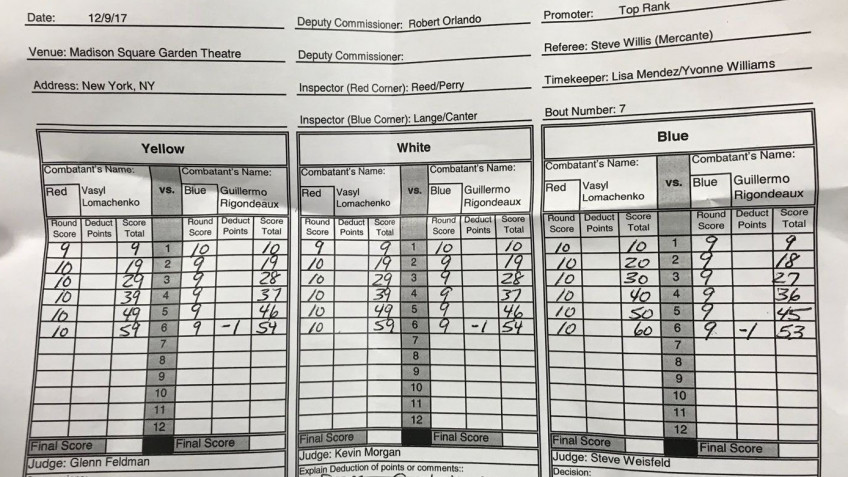 Date: 12/9/17
Deputy Commissioner: Robert Orlando
Promoter: Top Rank
Venue: Madison Square Garden Theatre
Deputy Commissioner:
Referee: Steve Willis (Mercante)
Address: New York, NY
Inspector (Red Corner): Reed/Perry
Timekeeper: Lisa Mendez/Yvonne Williams
Inspector (Blue Corner): Lange/Canter
Bout Number: 7
Yellow
Combatant's Name: Combatant's Name:
Red Vasyl Lomachenko vs. Blue Guillermo Rigondeaux
Round Score Deduct Points Score Total Round Score Deduct Points Score Total
9 9 1 10 10
10 19 2 9 19
10 29 3 9 28
10 39 4 9 37
10 49 5 9 46
10 59 6 9 -1 54
7
8
9
10
11
12
Final Score Final Score
Judge: Glenn Feldman
White
Combatant's Name: Combatant's Name:
Red Vasyl Lomachenko vs. Blue Guillermo Rigondeaux
Round Score Deduct Points Score Total Round Score Deduct Points Score Total
9 9 1 10 10
10 19 2 9 19
10 29 3 9 28
10 39 4 9 37
10 49 5 9 46
10 59 6 9 -1 54
7
8
9
10
11
12
Final Score Final Score
Judge: Kevin Morgan
Explain Deduction of points or comments::
Blue
Combatant's Name: Combatant's Name:
Red Vasyl Lomachenko vs. Blue Guillermo Rigondeaux
Round Score Deduct Points Score Total Round Score Deduct Points Score Total
10 10 1 9 9
10 20 2 9 18
10 30 3 9 27
10 40 4 9 36
10 50 5 9 45
10 60 6 9 -1 53
7
8
9
10
11
12
Final Score Final Score
Judge: Steve Weisfeld
Decision: